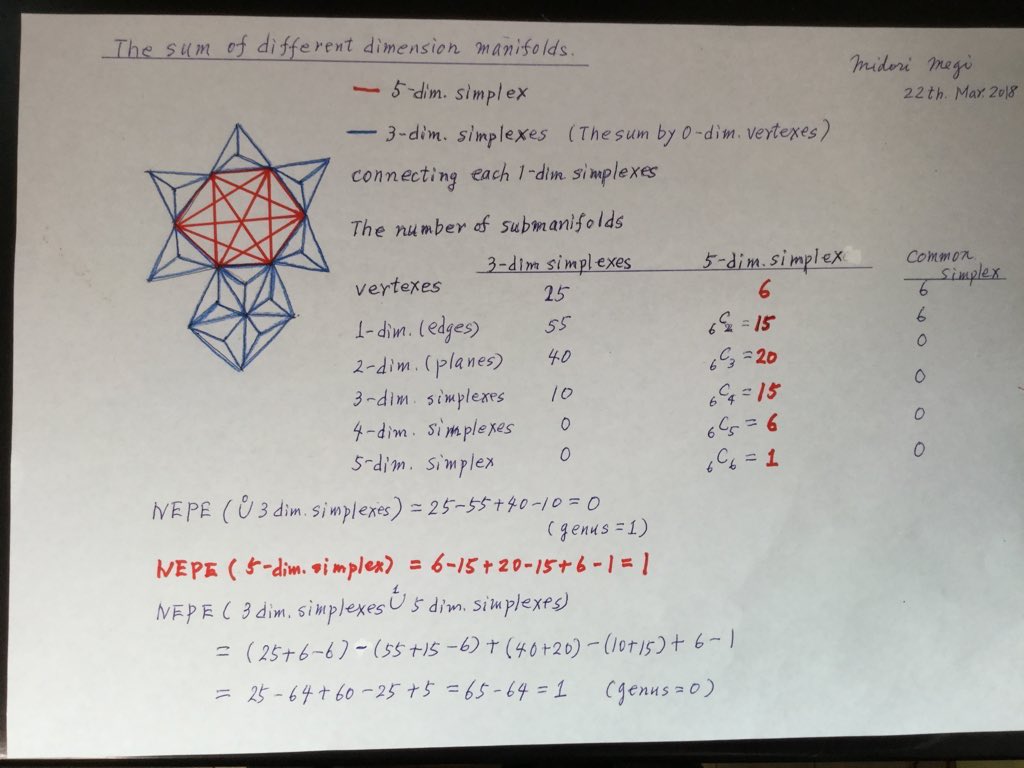 The sum of different dimension manifolds.
Midori Megi
22th. Mar. 2018
— 5-dim. simplex
— 3-dim. simplexes (The sum by 0-dim. vertexes)
connecting each 1-dim simplexes
The number of submanifolds
3-dim simplexes 5-dim. simplex Common simplex
vertexes 25 6 6
1-dim. (edges) 55 ₆C₂ = 15 6
2-dim. (planes) 40 ₆C₃ = 20 0
3-dim. simplexes 10 ₆C₄ = 15 0
4-dim. simplexes 0 ₆C₅ = 6 0
5-dim. simplex 0 ₆C₆ = 1 0
NEPE (⁰∪ 3 dim. simplexes) = 25-55+40-10 = 0
(genus = 1)
NEPE (5-dim. simplex) = 6-15+20-15+6-1 = 1
NEPE (3 dim. simplexes ¹∪ 5 dim. simplexes)
= (25+6-6) - (55+15-6) + (40+20) - (10+15) + 6 - 1
= 25-64+60-25+5 = 65-64 = 1 (genus = 0)